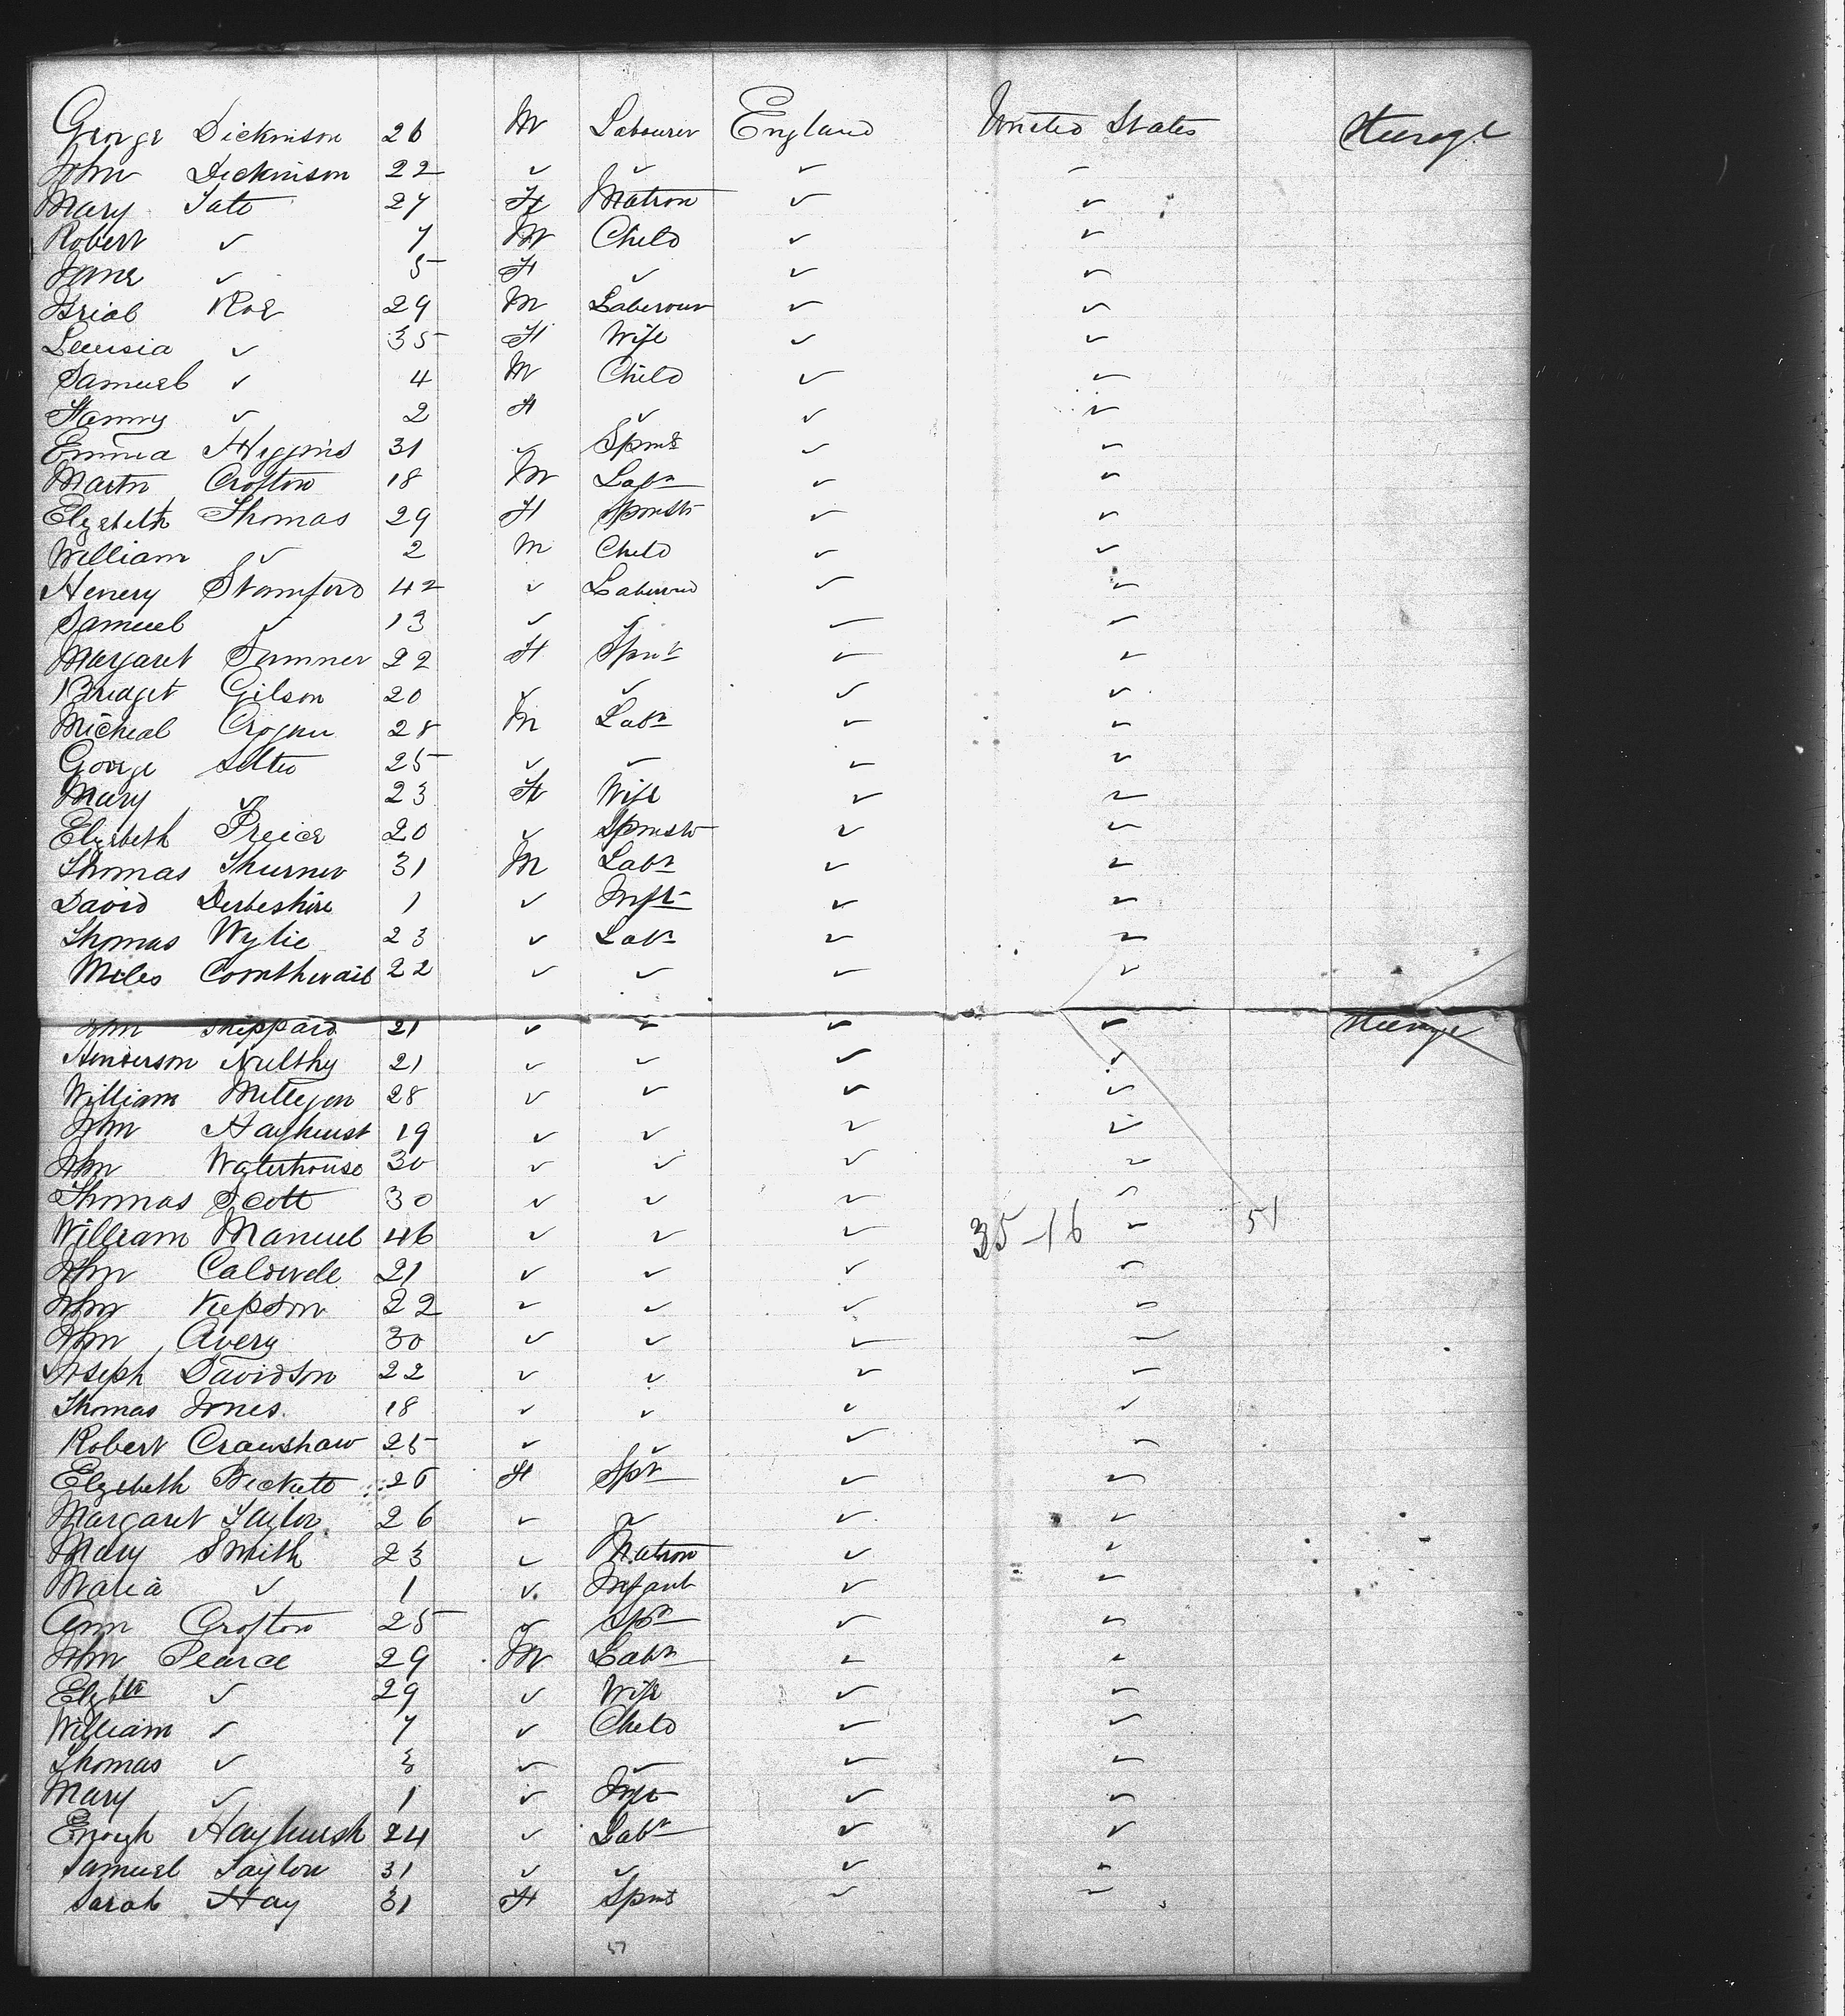 George Dickinson 26 M Labourer England United States Steerage
John Dickinson 22 ✓ ✓ ✓ ✓
Mary Tate 27 F Matron ✓ ✓
Robert ✓ 7 M Child ✓ ✓
Jane ✓ 5 F ✓ ✓ ✓
Roe 29 M Laberour ✓ ✓
✓ 35 F Wife ✓ ✓
Samuel ✓ 4 M Child ✓ ✓
Fanny ✓ 2 F ✓ ✓ ✓
Emma Higgins 31 ✓ Spins ✓ ✓
Martn Crofton 18 M Labr ✓ ✓
Elizebeth Thomas 29 F Spinstr ✓ ✓
William ✓ 2 M Child ✓ ✓
Henery Stamford 42 ✓ ✓ ✓
Samuel ✓ 13 ✓ ✓ ✓ ✓
Margaret Sumner 22 F Spinr ✓ ✓
Bridget Gilson 20 ✓ ✓ ✓ ✓
Micheal Crogan 28 M Labr ✓ ✓
George 25 ✓ ✓ ✓ ✓
Mary ✓ 23 F Wife ✓ ✓
Elizebeth Preice 20 ✓ Spinstr ✓ ✓
Thomas Thurner 31 M Labr ✓ ✓
David Derbeshire 1 ✓ Inft ✓ ✓
Thomas Wylie 23 ✓ Labr ✓ ✓
Miles Cornthwail 22 ✓ ✓ ✓ ✓
John Sheppard 21 ✓ ✓ ✓ ✓ Steerage
Henderson 21 ✓ ✓ ✓ ✓
William Millegan 28 ✓ ✓ ✓ ✓
John Hayhurst 19 ✓ ✓ ✓ ✓
John Waterhouse 30 ✓ ✓ ✓ ✓
Thomas Scott 30 ✓ ✓ ✓ ✓
William Manuel 46 ✓ ✓ ✓ 35-16 ✓ 51
John Caldwele 21 ✓ ✓ ✓ ✓
John 22 ✓ ✓ ✓ ✓
John Avery 30 ✓ ✓ ✓ ✓
Joseph Davidson 22 ✓ ✓ ✓ ✓
Thomas Jones 18 ✓ ✓ ✓ ✓
Robert Crawshaw 25 ✓ ✓ ✓ ✓
Elizebeth 26 F Spr ✓ ✓
Margaret Taylor 26 ✓ ✓ ✓ ✓
Mary Smith 23 ✓ Matron ✓ ✓
Maria ✓ 1 ✓ Infant ✓ ✓
Ann Crofton 25 ✓ Spr ✓ ✓
John Pearce 29 M Labr ✓ ✓
Elizbth ✓ 29 ✓ Wife ✓ ✓
William ✓ 7 ✓ Child ✓ ✓
Thomas ✓ 3 ✓ ✓ ✓ ✓
Mary ✓ 1 ✓ Inft ✓ ✓
Enough Hayhursh 24 ✓ Labr ✓ ✓
Samuel Taylor 31 ✓ ✓ ✓ ✓
Sarah Hay 31 F Spins ✓ ✓
51